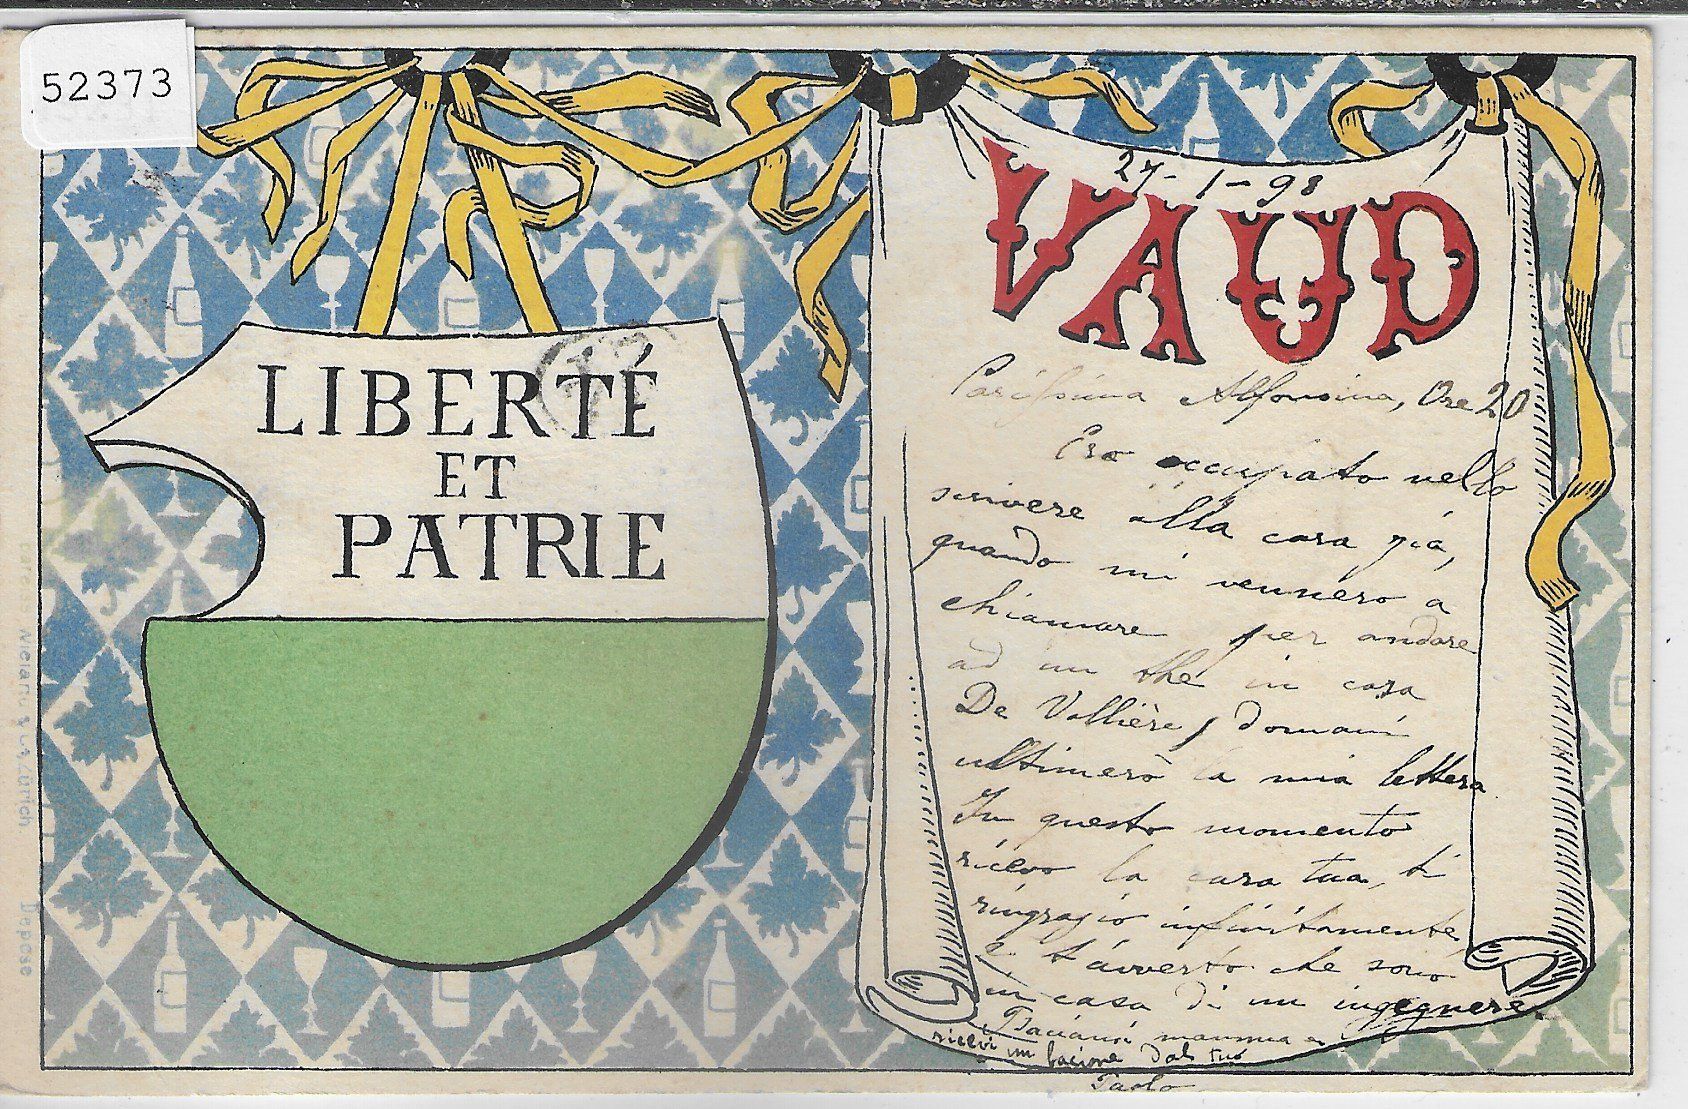 52373
LIBERTÉ
ET
PATRIE
27-1-98
VAUD
Carissima Alfonsina, Ore 20
Ero occupato nello
scrivere alla cara zia,
quando mi vennero a
chiamare per andare
ad un thé in casa
De Vallière, domani
ultimerò la mia lettera
In questo momento
ricevo la cara tua, ti
ringrazio infinitamente,
e t'avverto che sono
in casa di un ingegnere.
Baciami mamma e
ricevi un bacione dal tuo
Paolo
Zurich Déposé